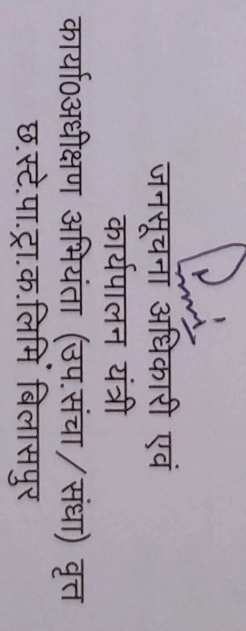 जनसूचना अधिकारी एवं
कार्यपालन यंत्री
कार्या०अधीक्षण अभियंता (उप.संचा / संधा) वृत्त
छ.स्टे.पा.ट्रा.क.लिमि. बिलासपुर